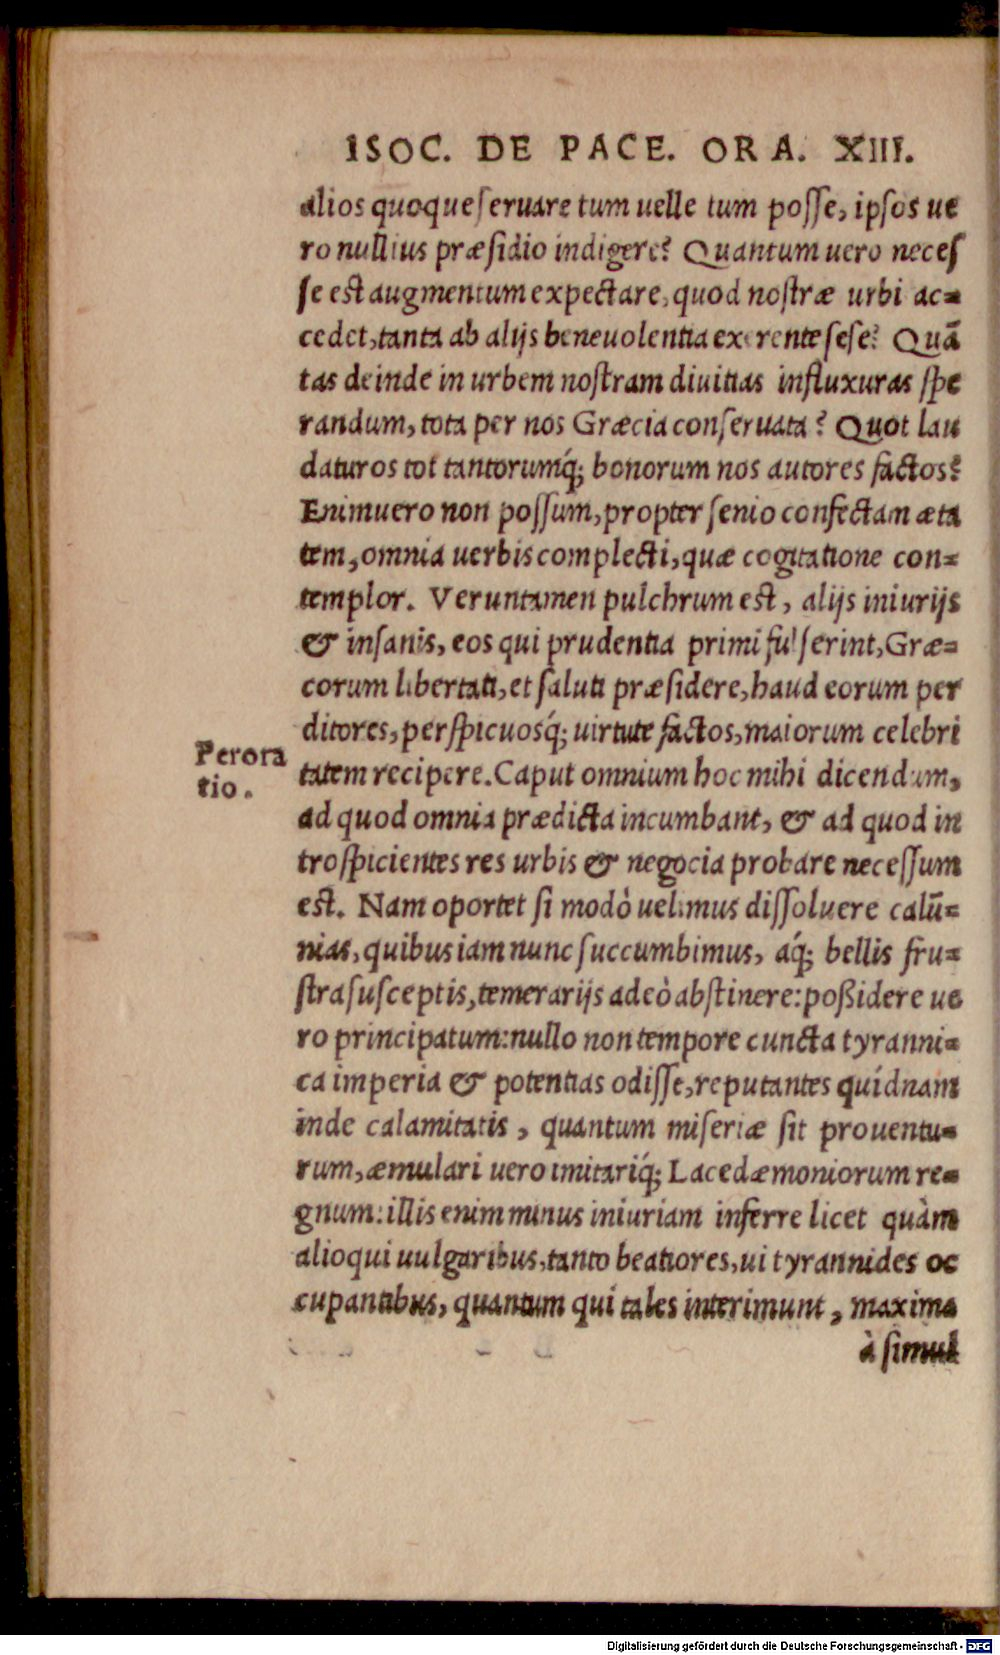 ISOC. DE PACE. ORA. XIII.
alios quoque seruare tum uelle tum posse, ipsos ue
ro nullius præsidio indigere? Quantum uero neces
se est augmentum expectare, quod nostræ urbi ac=
cedet, tanta ab alijs beneuolentia exerente sese? Quã
tas deinde in urbem nostram diuitias influxuras spe
randum, tota per nos Græcia conseruata? Quot lau
daturos tot tantorumq́; bonorum nos autores factos?
Enimuero non possum, propter senio confectam æta
tem, omnia uerbis complecti, quæ cogitatione con=
templor. Veruntamen pulchrum est, alijs iniurijs
& insanis, eos qui prudentia primi fulserint, Græ=
corum libertati, et saluti præsidere, haud eorum per
ditores, perspicuosq́; uirtute factos, maiorum celebri
Perora
tio.
tatem recipere. Caput omnium hoc mihi dicendum,
ad quod omnia prædicta incumbant, & ad quod in
trospicientes res urbis & negocia probare necessum
est. Nam oportet si modò uelimus dissoluere calũ=
nias, quibus iam nunc succumbimus, aq́; bellis fru=
stra susceptis, temerarijs adeò abstinere: poßidere ue
ro principatum: nullo non tempore cuncta tyranni=
ca imperia & potentias odisse, reputantes quídnam
inde calamitatis, quantum miseriæ sit prouentu=
rum, æmulari uero imitariq́; Lacedæmoniorum re=
gnum: illis enim minus iniuriam inferre licet quàm
alioqui uulgaribus, tanto beatiores, ui tyrannides oc
cupantibus, quantum qui tales interimunt, maxima
à simul
Digitalisierung gefördert durch die Deutsche Forschungsgemeinschaft - DFG